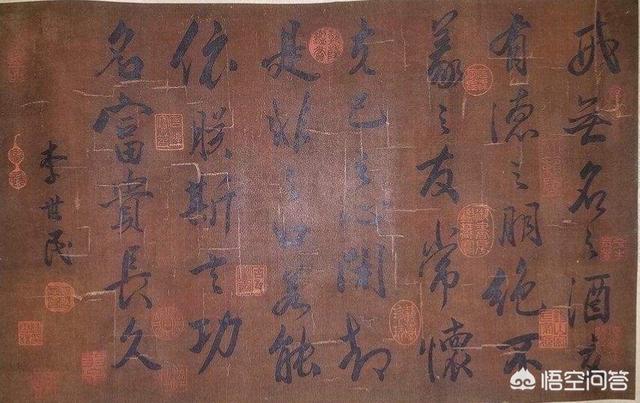 戒無名之酒近
有德之朋絶不
義之友常懷
克己之心閉却
是非之口若能
依朕斯言功
名富貴長久
李世民
悟空问答